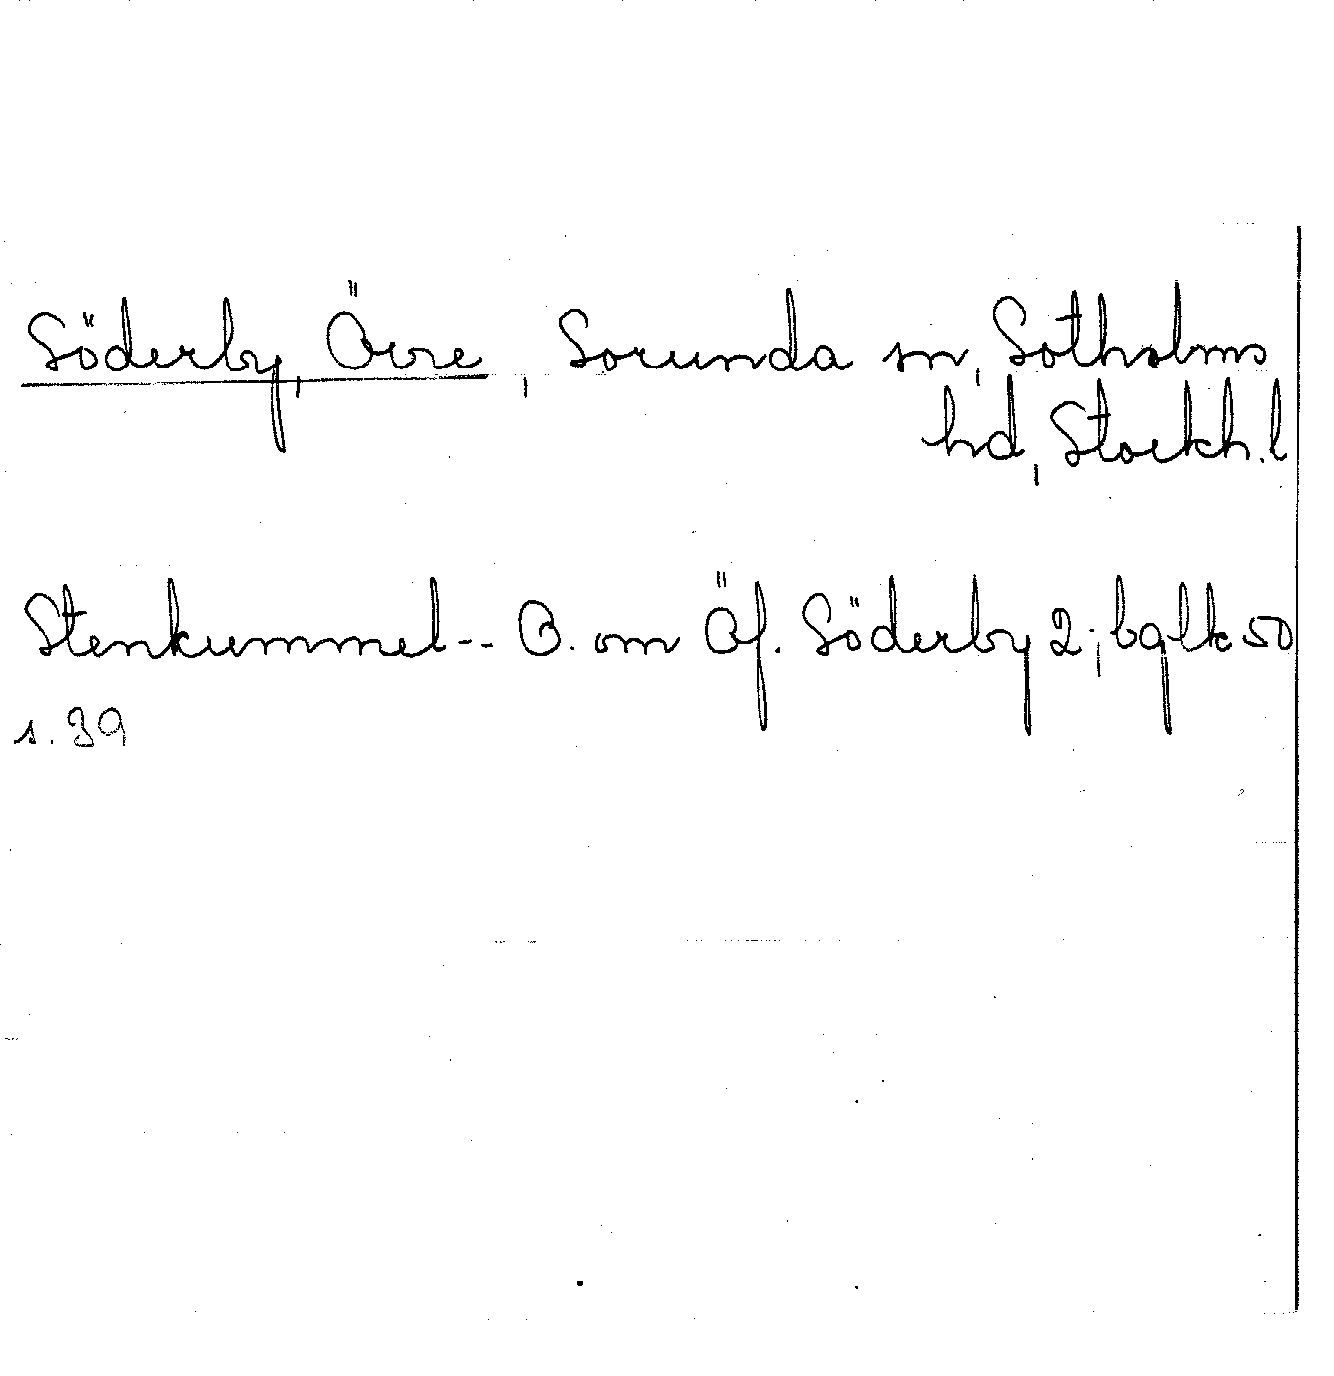 Söderby, Övre, Sorunda sn, Sotholms
hd, Stockh. l
Stenkummel -- O. om Öf. Söderby 2; bqlk 50
s. 39